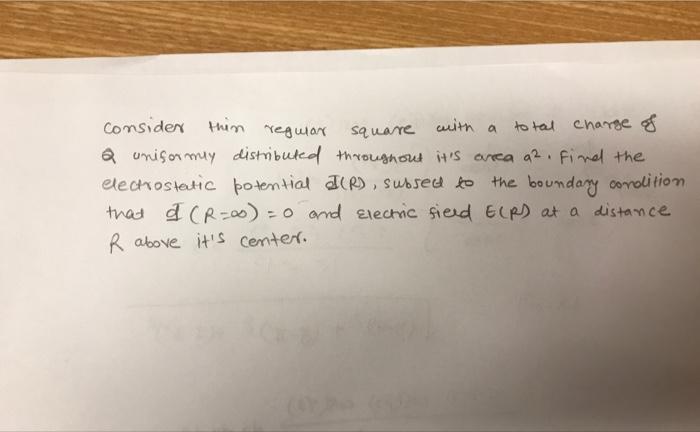 Consider thin regular square with a total charge of
Q uniformly distributed throughout it's area a². Find the
electrostatic potential Φ(R), subsed to the boundary condition
that Φ(R=∞) = 0 and Electric field E(R) at a distance
R above it's center.